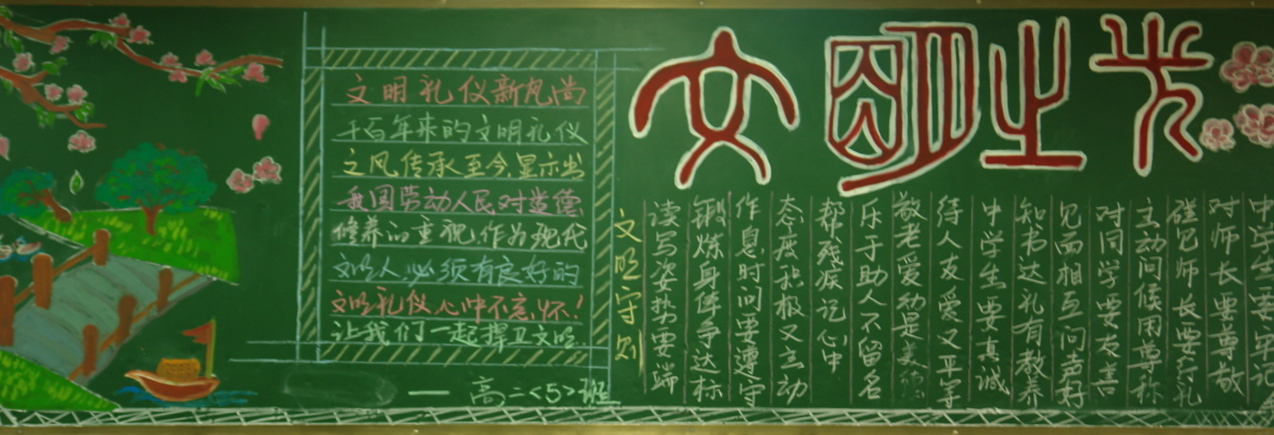 文明之光
文明礼仪新风尚
千百年来的文明礼仪
之风传承至今,显示出
我国劳动人民对道德
修养的重视,作为现代
文明人,必须有良好的
文明礼仪心中不忘怀!
让我们一起捍卫文明.
—高二<5>班
中学生要牢记
对师长要尊敬
碰见师长要行礼
主动问候用尊称
对同学要友善
见面相互问声好
知书达礼有教养
中学生要真诚
待人友爱又平等
敬老爱幼是美德
乐于助人不留名
帮残疾记心中
态度积极又主动
作息时间要遵守
锻炼身体争达标
读写姿势要端
文明守则